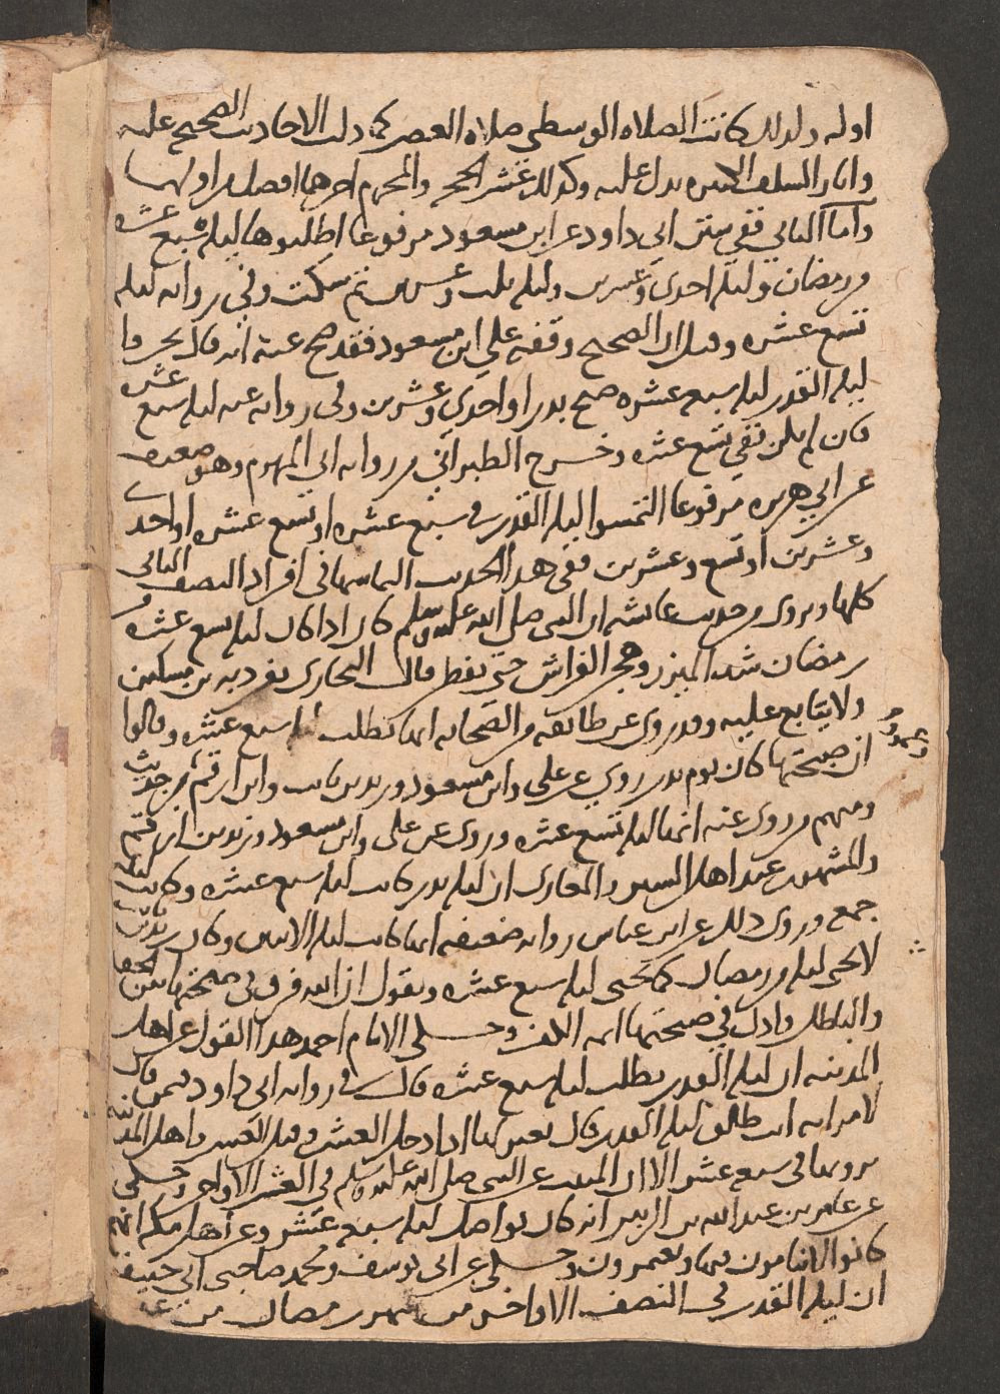 اوله ولذلك كانت الصلاه الوسطى صلاه العصر كما دلت الاحاديث الصحيح عليه
واثار السلف الكثيره يدل عليه وكذلك عشر الحجه والمحرم اخرها افضل من اولهما
واما الثاني ففي سنن ابي داود عن ابن مسعود مرفوعا اطلبوها ليله سبع عشره
من رمضان وليله احدى وعشرين وليله ثلاث وعشرين ثم سكت وفي روايه ليله
تسع عشره وقيل ان الصحيح وقفه على ابن مسعود فقد صح عنه انه قال تحروا
ليله القدر ليله سبع عشره صبح بدر او احدى وعشرين وفي روايه عنه ليله سبع عشره
فان لم يكن ففي تسع عشره وخرج الطبراني من روايه ابي المهزم وهو ضعيف
عن ابي هريره مرفوعا التمسوا ليله القدر في سبع عشره او تسع عشره او احدى
وعشرين او تسع وعشرين ففي هذا الحديث التماسها في افراد النصف الثاني
كلها ويروى من حديث عائشه ان النبي صلى الله عليه وسلم كان اذا كان ليله سبع عشره من
رمضان شد الميزر وهجر الفراش حتى يفطر قال البخاري تفرد به بن مسكين
ولا يتابع عليه وقد روي عن طائفه من الصحابه انها تطلب ليله سبع عشره وقالوا
وعمرو
ان صبحتها كان يوم بدر روي عن علي وابن مسعود وزيد بن ثابت وابن ارقم بن حريث
ومنهم من روى عنه انها ليله تسع عشره وروى عن علي وابن مسعود وزيد بن ارقم
والمشهور عند اهل السير والمغازى ان ليله بدر كانت ليله سبع عشره وكانت ليله
جمعه وروى ذلك عن ابن عباس روايه ضعيفه انها كانت ليله الاثنين وكان زيد بن ثابت
لا يحيى ليله من رمضان كما يحيى ليله سبع عشره ويقول ان الله فرق في صبحتها بين الحق
والباطل واذل في صبحتها ائمه الكفر وحكى الامام احمد هذا القول عن اهل
المدينه ان ليله القدر تطلب ليله سبع عشره قال في روايه ابي داود فيمن قال
لامراته انت طالق ليله القدر قال يعتزلها اذا دخل العشر وقبل العشر اهل المدينه
يرونها في سبع عشره الا ان المثبت عن النبي صلى الله عليه وسلم في العشر الاواخر وحكي
عن عامر بن عبد الله بن الزبير انه كان يواصل ليله سبع عشره وعن اهل مكه انهم
كانوا لا ينامون فيها ويعتمرون وحكي عن ابي يوسف ومحمد صاحبي ابي حنيفه
ان ليله القدر في النصف الاواخر من شهر رمضان من